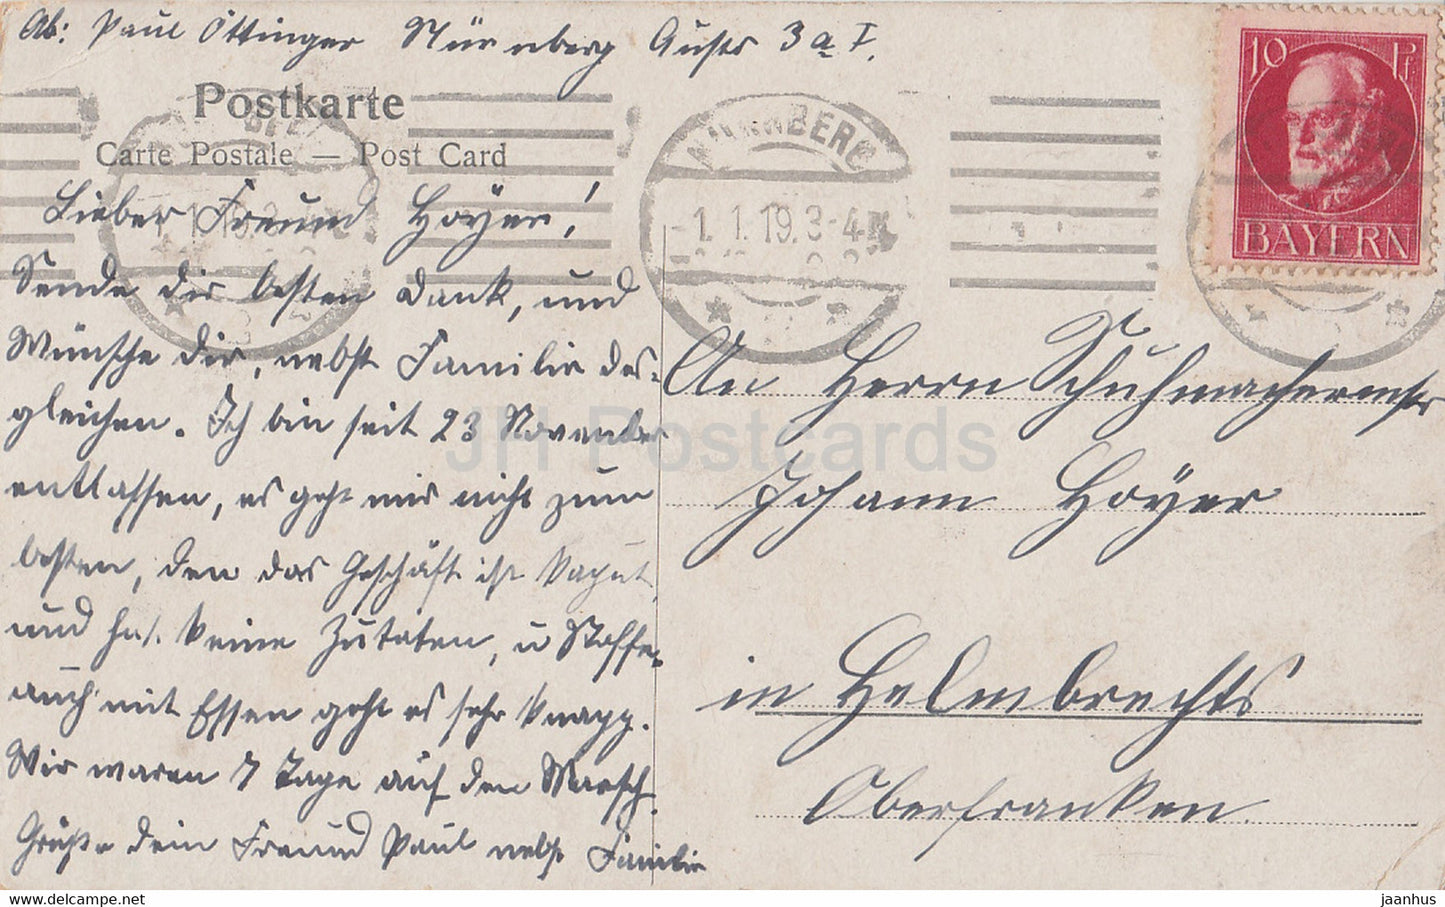 Ab: Paul Öttinger Nürnberg Austr 3 a I.
Postkarte
Carte Postale — Post Card
Lieber Freund Hoÿer!
Sende dir besten Dank, und
Wünsche dir, nebst Familie des-
gleichen. Ich bin seit 23 November
entlassen, es geht mir nicht zum
besten, den das Geschäft ist kaput
und hat keine Zutaten, u Stoffe.
auch mit Essen geht es sehr knapp.
Wir waren 7 Tage auf den Marsch.
Grüße dein Freund Paul nebst Familie
NÜRNBERG
1. 1. 19. 3-4 N
2
10 Pf
BAYERN
An Herrn Schuhmachermstr
Johann Hoÿer
in Helmbrechts
Oberfranken.
JH Postcards
hippostcard.com
jaanhus